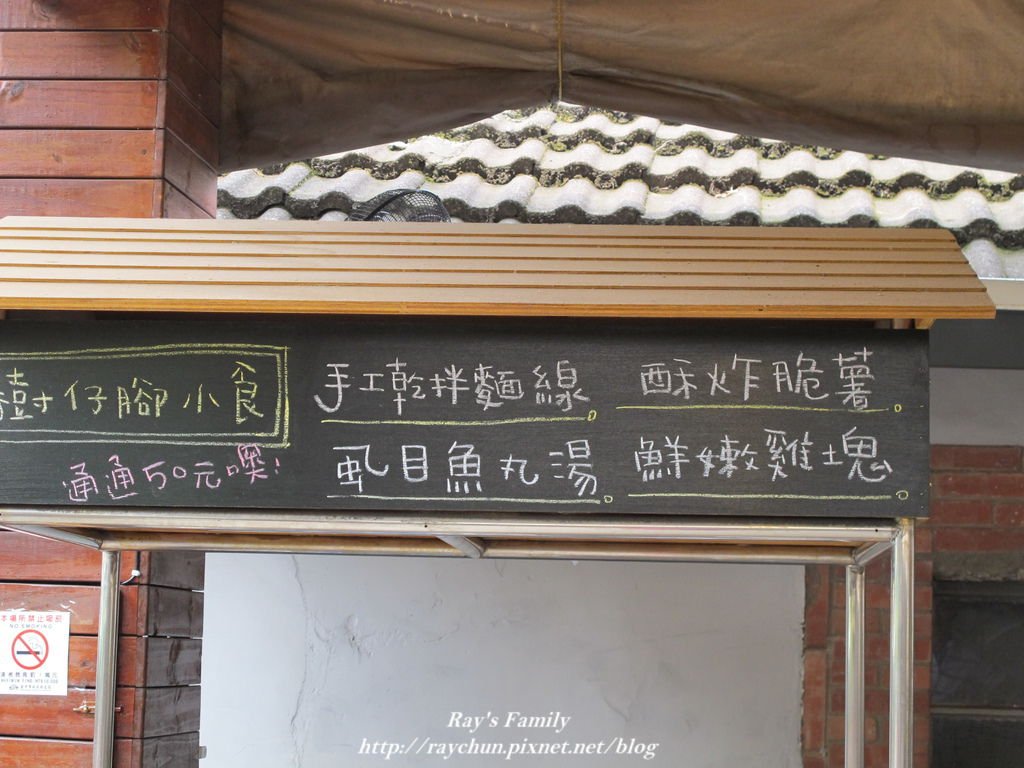 樹仔腳小食
通通50元噢!
手工乾拌麵線
虱目魚丸湯
酥炸脆薯
鮮嫩雞塊
本場所禁止吸菸
NO SMOKING
Ray's Family
http://raychun.pixnet.net/blog